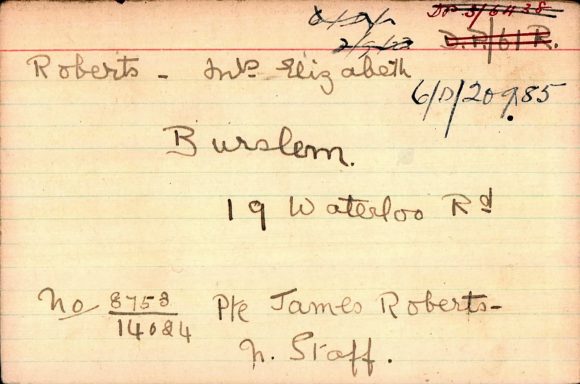 DP 3/6438
D.P/61 R.
Roberts - Mrs Elizabeth
6/D/20985
Burslem.
19 Waterloo Rd
No 8753
14084
Pte James Roberts-
N. Staff.